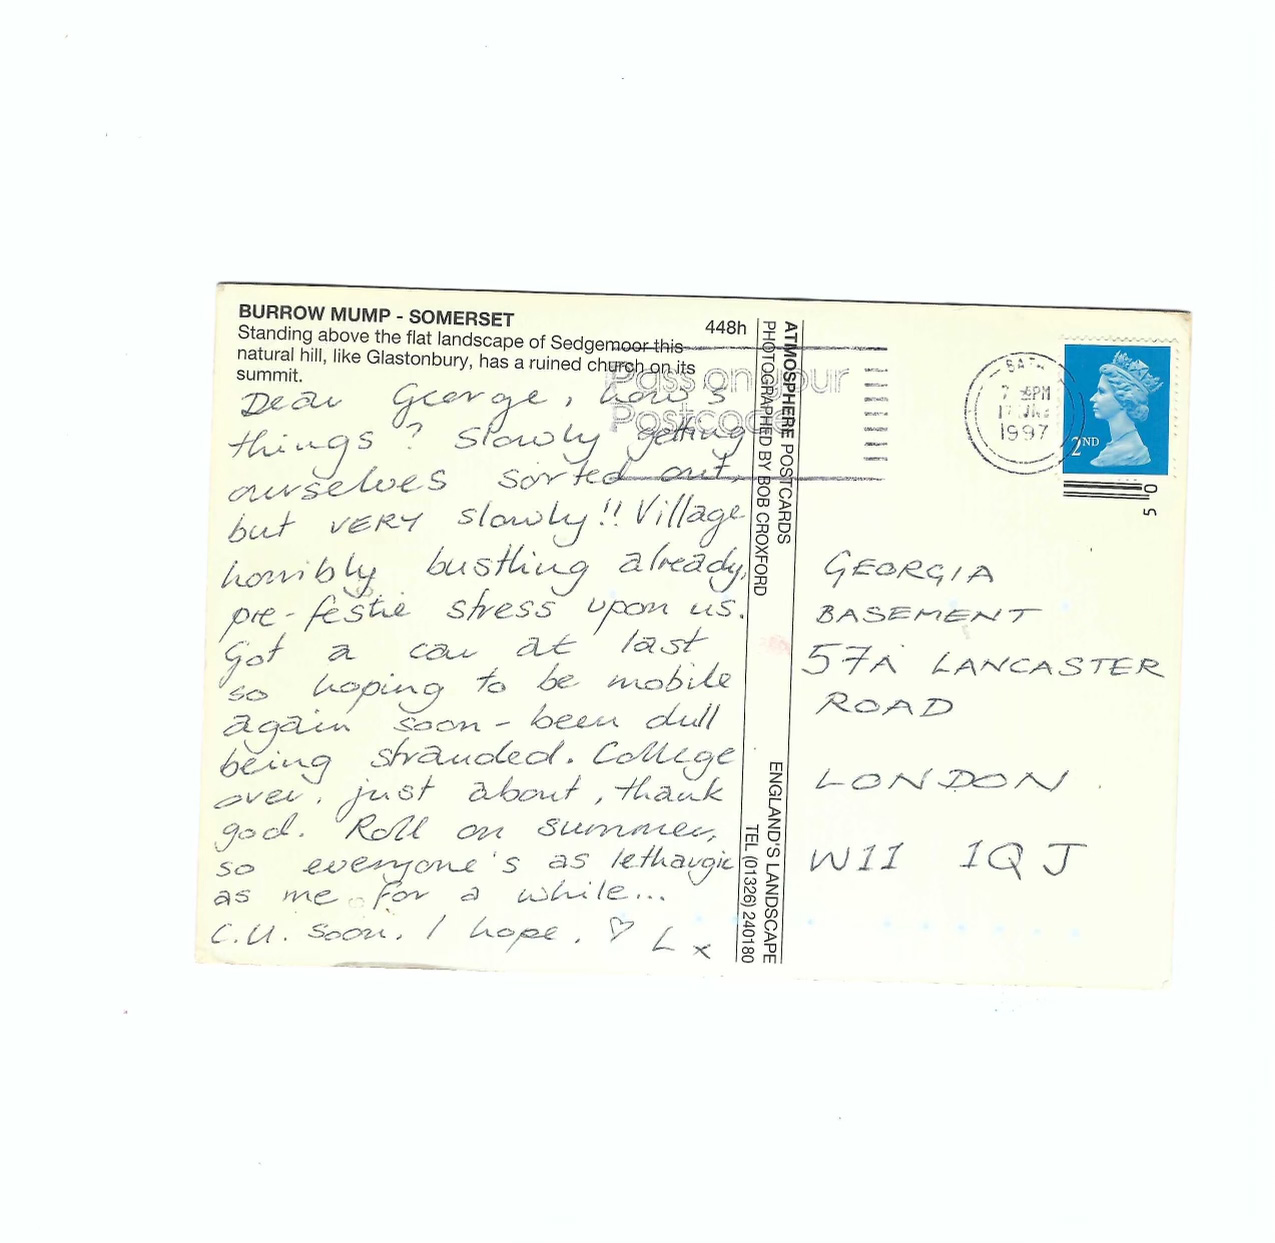 BURROW MUMP - SOMERSET
Standing above the flat landscape of Sedgemoor this
natural hill, like Glastonbury, has a ruined church on its
summit.
448h
Dear George, how's
things? Slowly getting
ourselves sorted out,
but VERY slowly!! Village
horribly bustling already,
pre-festie stress upon us.
Got a car at last
so hoping to be mobile
again soon - been dull
being stranded. College
over, just about, thank
god. Roll on summer,
so everyone's as lethargic
as me for a while...
C.U. soon. I hope. ♡ L x
Pass on your
Postcode
ATMOSPHERE POSTCARDS
PHOTOGRAPHED BY BOB CROXFORD
ENGLAND'S LANDSCAPE
TEL (01326) 240180
BATH
PM
17
1997
2ND
05
GEORGIA
BASEMENT
57A LANCASTER
ROAD
LONDON
W11 1QJ